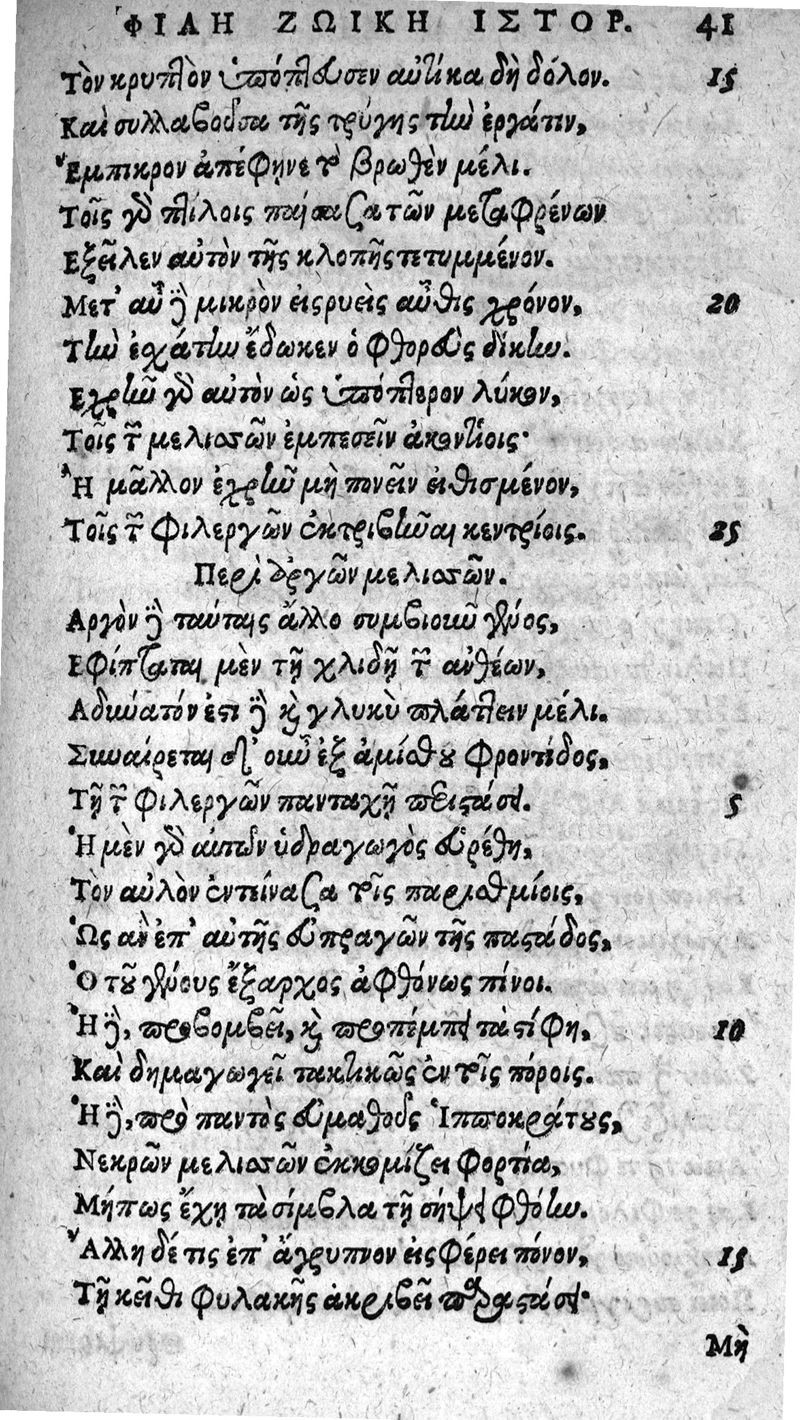 ΦΙΛΗ ΖΩΙΚΗ ΙΣΤΟΡ. 41
Τὸν κρυπτὸν ὑπόπτευσεν αὐτίκα δὴ δόλον. 15
Καὶ συλλαβοῦσα τῆς τρύγης τὴν ἐργάτιν,
Ἔμπικρον ἀπέφηνε τὸ βρωθὲν μέλι.
Τοῖς γὸ πτίλοις παίσασα τῶν μεταφρένων
Εξεῖλεν αὐτὸν τῆς κλοπῆς τετυμμένον.
Μετ' αὖ δὲ μικρὸν εἰσρυεὶς αὖθις χρόνον, 20
Τὴν ἐσχάτην ἔδωκεν ὁ φθορεὺς δίκην.
Εχρῆν γὸ αὐτὸν ὡς ὑπόπτερον λύκον,
Τοῖς τῶν μελισσῶν ἐμπεσεῖν ἀκοντίοις·
Ἢ μᾶλλον ἐχρῆν μὴ πονεῖν εἰθισμένον,
Τοῖς τῶν φιλεργῶν ἐκτριβῆναι κεντρίοις. 25
Περὶ ἀργῶν μελισσῶν.
Αργὸν δὲ ταύταις ἄλλο συμβιοιοῦν γένος,
Εφίπταται μὲν τῇ χλιδῇ τῶν ανθέων,
Αδιώατόν ἐστι δὲ καὶ γλυκὺ πλάττειν μέλι.
Συναίρεται δ' οὖν ἐξ ἀμίσθου φροντίδος,
Τῇ τῶν φιλεργῶν πανταχῆ περιστάσει. 5
Ἡ μὲν γὸ αὐτῶν ὑδραγωγὸς εὑρέθη,
Τὸν αὐλὸν ἐντείνασα τοῖς παρισθμίοις,
Ὡς ἂν ἐπ' αὐτῆς εὐπραγῶν τῆς παστάδος,
Ὁ τοῦ γένους ἔξαρχος ἀφθόνως πίνοι.
Ἡ δὲ, προβομβεῖ, καὶ προπέμπει τὰ στίφη, 10
Καὶ δημαγωγεῖ τακτικῶς ἐν τοῖς πόροις.
Ἡ δὲ, πρὸ παντὸς εὐμαθοῦς Ἱπποκράτους,
Νεκρῶν μελισσῶν ἐκκομίζει φορτία,
Μήπως ἔχῃ τὰ σίμβλα τῇ σήψει φθόην.
Ἄλλη δέ τις ἐπ' ἄγρυπνον εἰσφέρει πόνον, 15
Τῇ κεῖθι φυλακῆς ἀκριβεῖ παραστάσει·
Μὴ